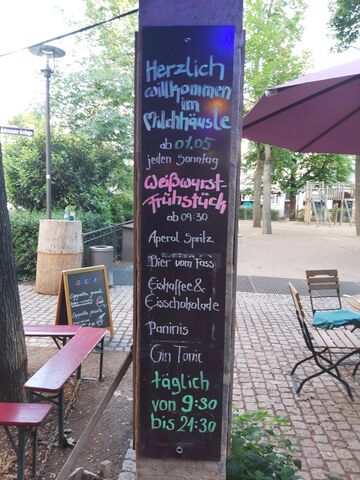 Herzlich
willkommen
im
Milchhäusle
ab 01.05
jeden Sonntag
Weißwurst-
Frühstück
ab 09:30
Aperol Spritz
Bier vom Fass
Eiskaffee &
Eisschokolade
Paninis
Gin Tonic
täglich
von 9:30
bis 21:30